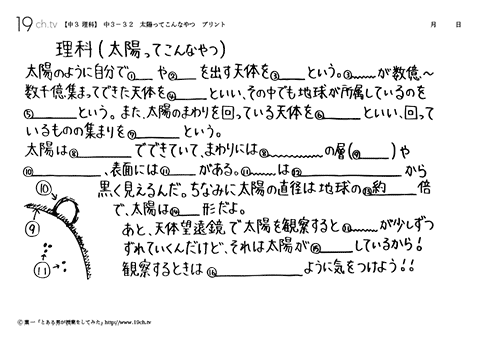 19ch.tv 【中3 理科】 中3-32 太陽ってこんなやつ プリント 月 日
理科(太陽ってこんなやつ)
太陽のように自分で①__や②____を出す天体を③____という。③〰が数億〜
数千億集まってできた天体を④______といい、その中でも地球が所属しているのを
⑤______という。また、太陽のまわりを回っている天体を⑥______といい、回って
いるものの集まりを⑦______という。
太陽は⑧________でできていて、まわりには⑧〰の層(⑨______)や
⑩__________、表面には⑪____がある。⑪〰は⑫______________から
黒く見えるんだ。ちなみに太陽の直径は地球の⑬約____倍
で、太陽は⑭__形だよ。
あと、天体望遠鏡で太陽を観察すると⑪〰が少しずつ
ずれていくんだけど、それは太陽が⑮______しているから!
観察するときは⑯______________ように気をつけよう!!
⑩
⑨
⑪
©葉一「とある男が授業をしてみた」http://www.19ch.tv